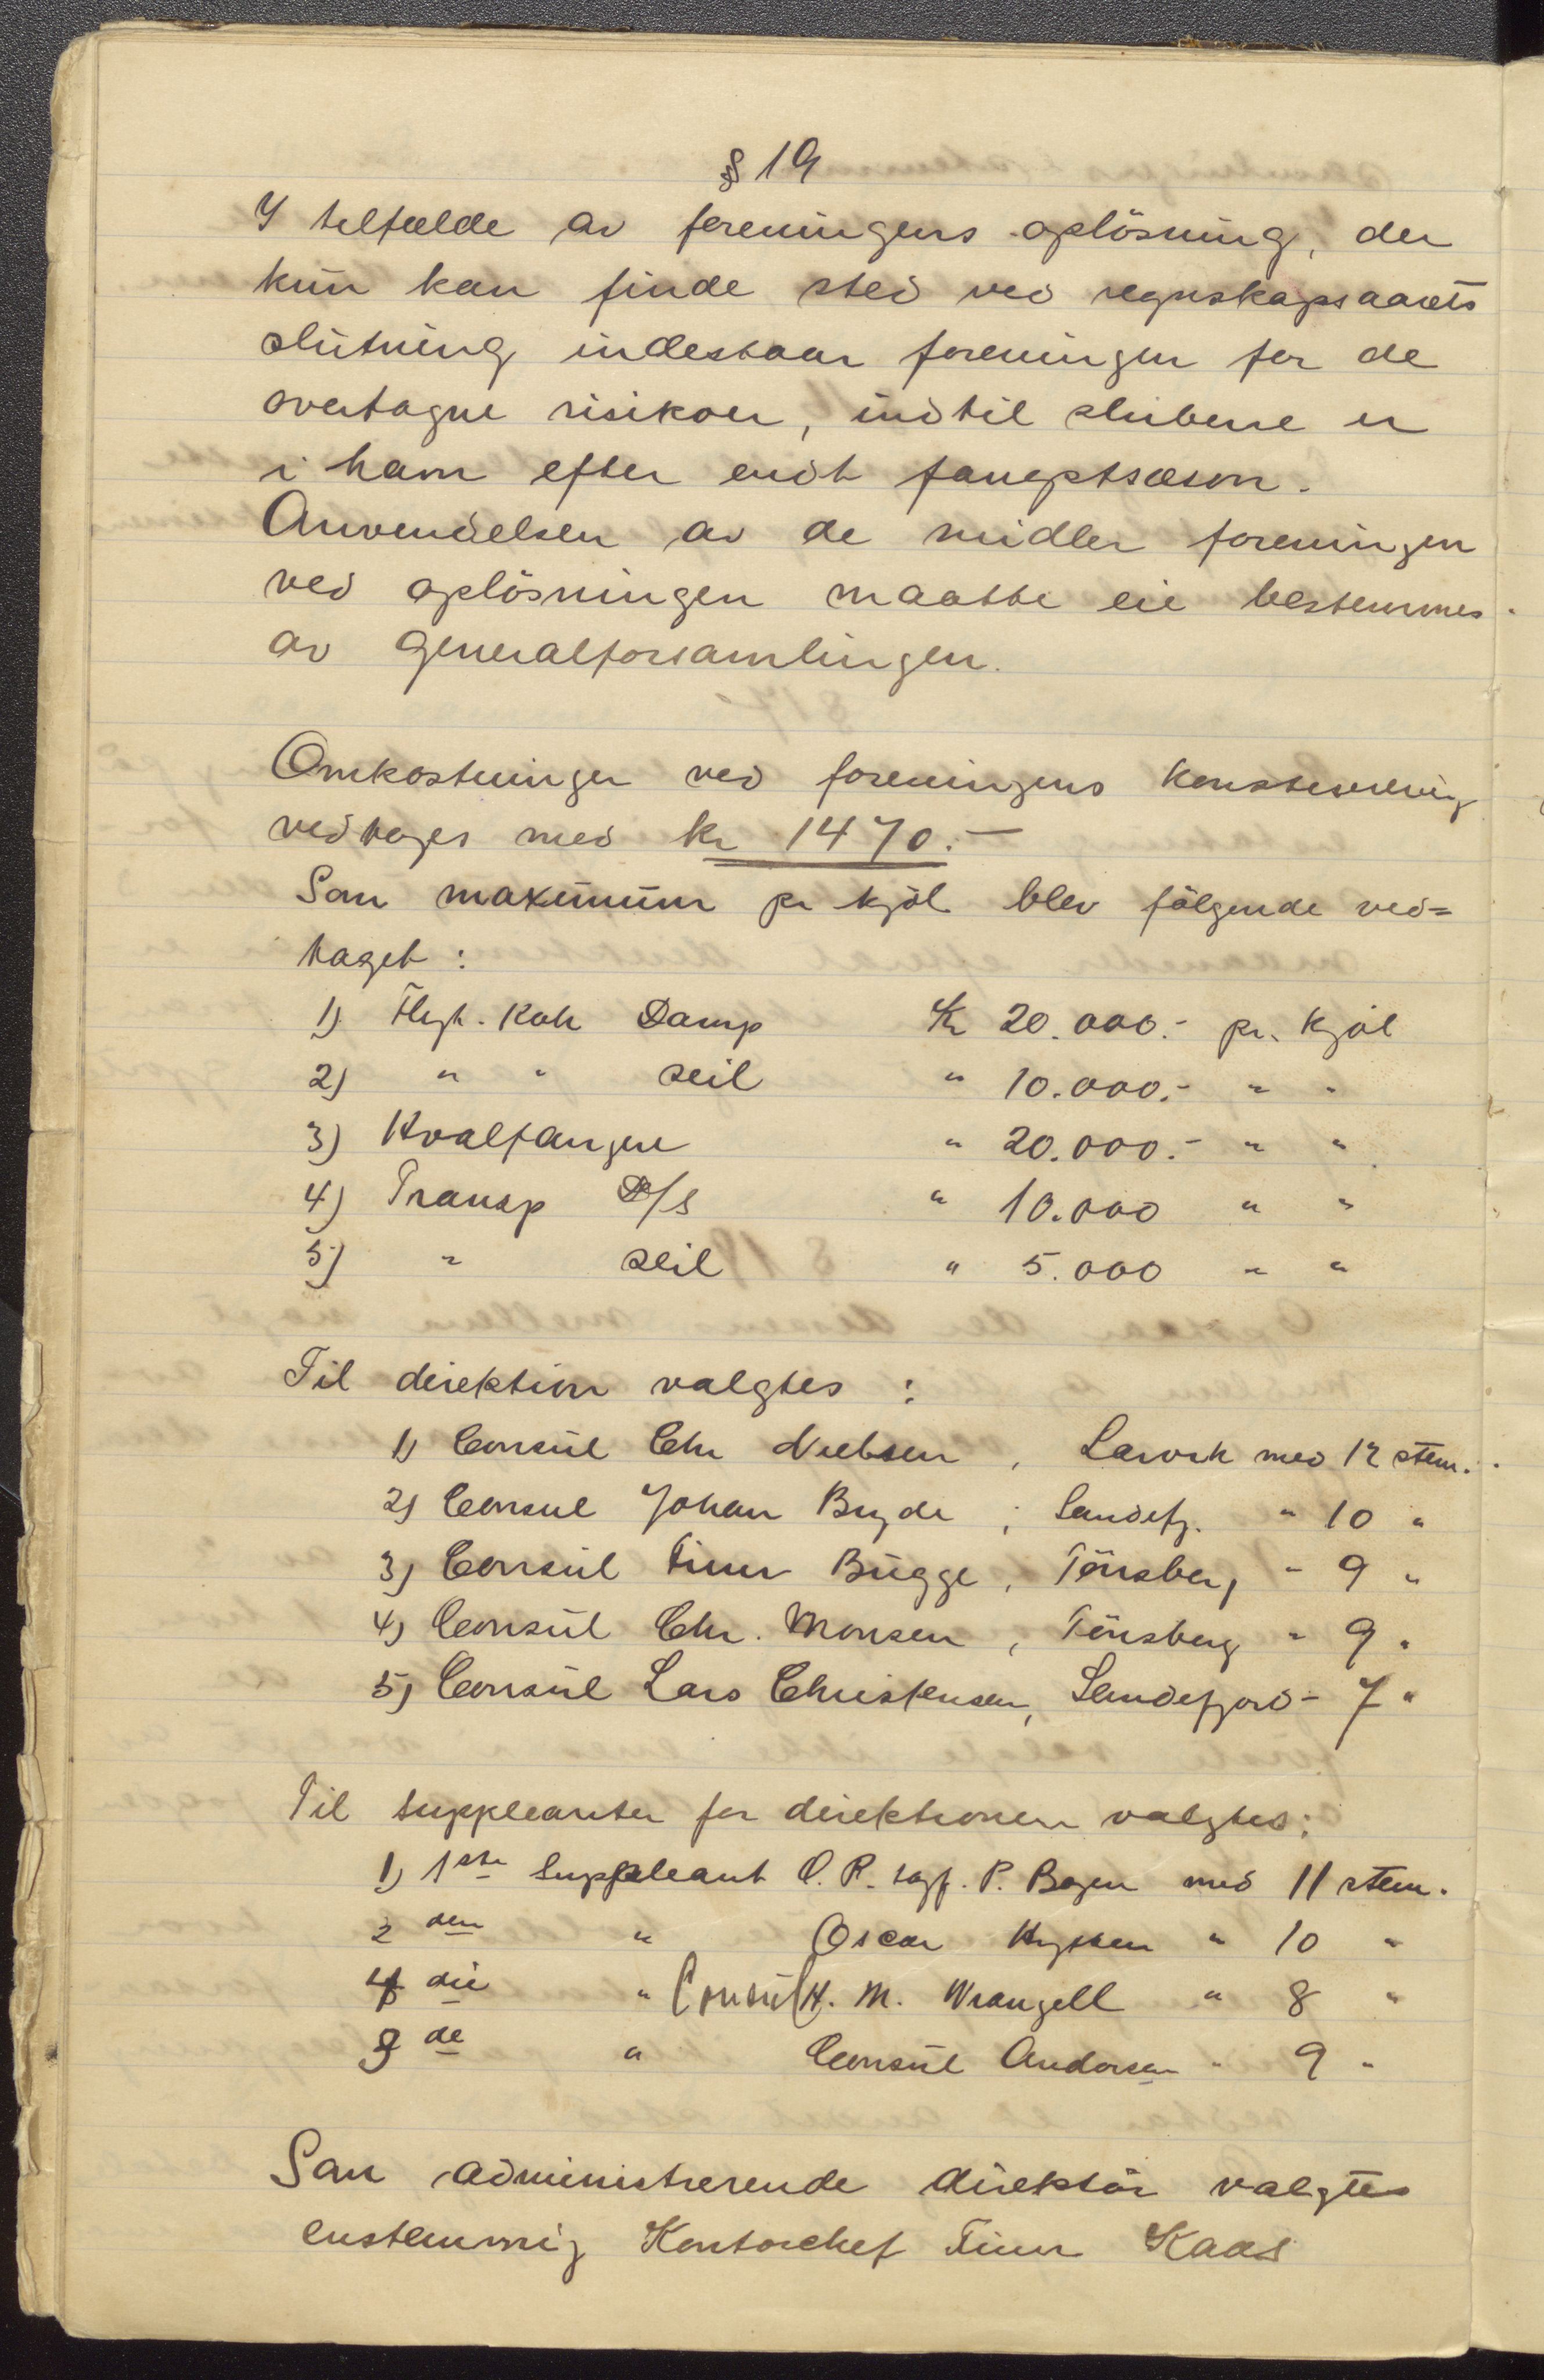 § 19
I tilfælde av foreningens oplösning, der
kun kan finde sted ved regnskapsaarets
slutning indestaar foreningen for de
overtagne risikoer, indtil skibene er
i havn efter endt fangstsæson.
Anvendelsen av de midler foreningen
ved oplösningen maatte eie bestemmes
av generalforsamlingen.
Omkostninger ved foreningens konstituering
vedtages med kr 1470.-
Som maximum pr kjöl blev fölgende ved=
taget:
1) Flyt. Kok Damp Kr 20.000.- pr. kjöl
2) " " seil " 10.000.- " "
3) Hvalfangere " 20.000.- " "
4) Transp D/S " 10.000 " "
5) " seil " 5.000 " "
Til direktion valgtes :
1) Consul Chr Nielsen, Larvik med 12 stem.
2) Consul Johan Bryde, Sandefj. " 10 "
3) Consul Finn Bugge, Tönsberg " 9 "
4) Consul Chr. Monsen, Tönsberg " 9 "
5) Consul Lars Christensen, Sandefjord - 7 "
Til suppleanter for direktionen valgtes:
1) 1ste Suppleant O.R. sagf. P. Bogen med 11 stem.
2 den " Oscar Hytten " 10 "
4 die " Consul H. M. Wrangell " 8 "
3 de " Consul Andorsen " 9 "
Som administrerende direktör valgtes
enstemmig Kontorchef Finn Kaas